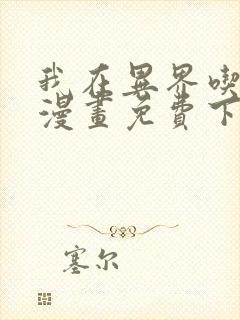 我在異界喫
漫畫免費下
塞尔